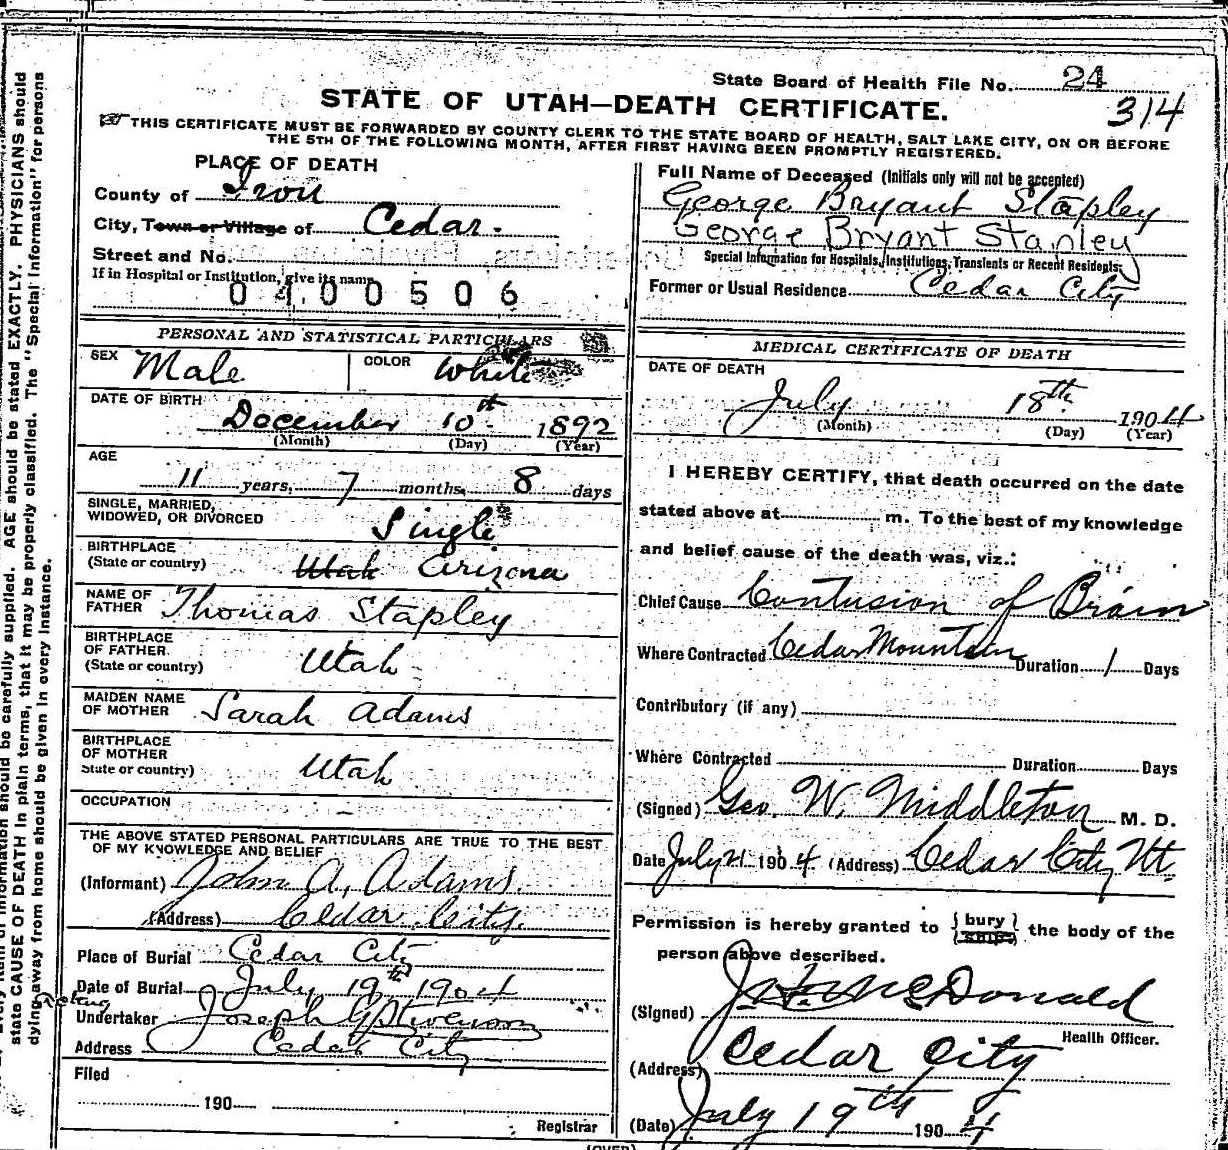 State Board of Health File No. 24
STATE OF UTAH—DEATH CERTIFICATE.
314
THIS CERTIFICATE MUST BE FORWARDED BY COUNTY CLERK TO THE STATE BOARD OF HEALTH, SALT LAKE CITY, ON OR BEFORE
THE 5TH OF THE FOLLOWING MONTH, AFTER FIRST HAVING BEEN PROMPTLY REGISTERED.
PLACE OF DEATH
County of Iron
City, Town or Village of Cedar.
Street and No.
If in Hospital or Institution, give its name
0400506
PERSONAL AND STATISTICAL PARTICULARS
SEX Male COLOR White
DATE OF BIRTH
December 10th 1892
(Month) (Day) (Year)
AGE
11 years, 7 months, 8 days
SINGLE, MARRIED,
WIDOWED, OR DIVORCED Single
BIRTHPLACE
(State or country) Utah Arizona
NAME OF
FATHER Thomas Stapley
BIRTHPLACE
OF FATHER.
(State or country) Utah
MAIDEN NAME
OF MOTHER Sarah Adams
BIRTHPLACE
OF MOTHER
State or country) Utah
OCCUPATION –
THE ABOVE STATED PERSONAL PARTICULARS ARE TRUE TO THE BEST
OF MY KNOWLEDGE AND BELIEF
(Informant) John A. Adams
(Address) Cedar City.
Place of Burial Cedar City
Date of Burial July 19th 1904
Acting
Undertaker Joseph G Stevenson
Address Cedar City
Filed
190
Registrar
Full Name of Deceased (Initials only will not be accepted)
George Bryant Stapley
George Bryant Stanley
Special Information for Hospitals, Institutions, Transients or Recent Residents:
Former or Usual Residence Cedar City
MEDICAL CERTIFICATE OF DEATH
DATE OF DEATH
July 18th 1904
(Month) (Day) (Year)
I HEREBY CERTIFY, that death occurred on the date
stated above at m. To the best of my knowledge
and belief cause of the death was, viz.:
Chief Cause Contusion of Brain
Where Contracted Cedar Mountain Duration 1 Days
Contributory (if any)
Where Contracted Duration Days
(Signed) Geo. W. Middleton M. D.
Date July 21 1904 (Address) Cedar City Ut.
Permission is hereby granted to {bury / ship} the body of the
person above described.
(Signed) McDonald
Health Officer.
(Address) Cedar City
(Date) July 19th 1904
(OVER)
state CAUSE OF DEATH in plain terms, that it may be properly classified. The "Special Information" for persons
dying away from home should be given in every instance.
information should be carefully supplied. AGE should be stated EXACTLY. PHYSICIANS should